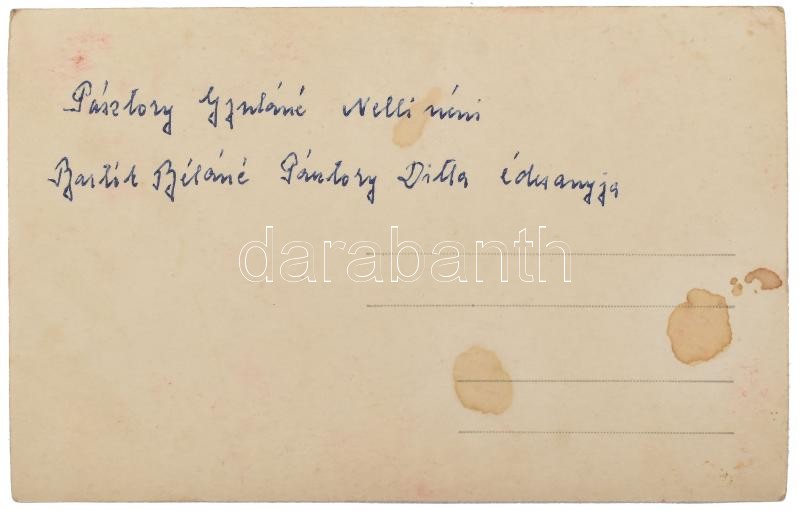 Pásztory Gyuláné Nelli néni
Bartók Béláné Pásztory Ditta édesanyja
darabanth